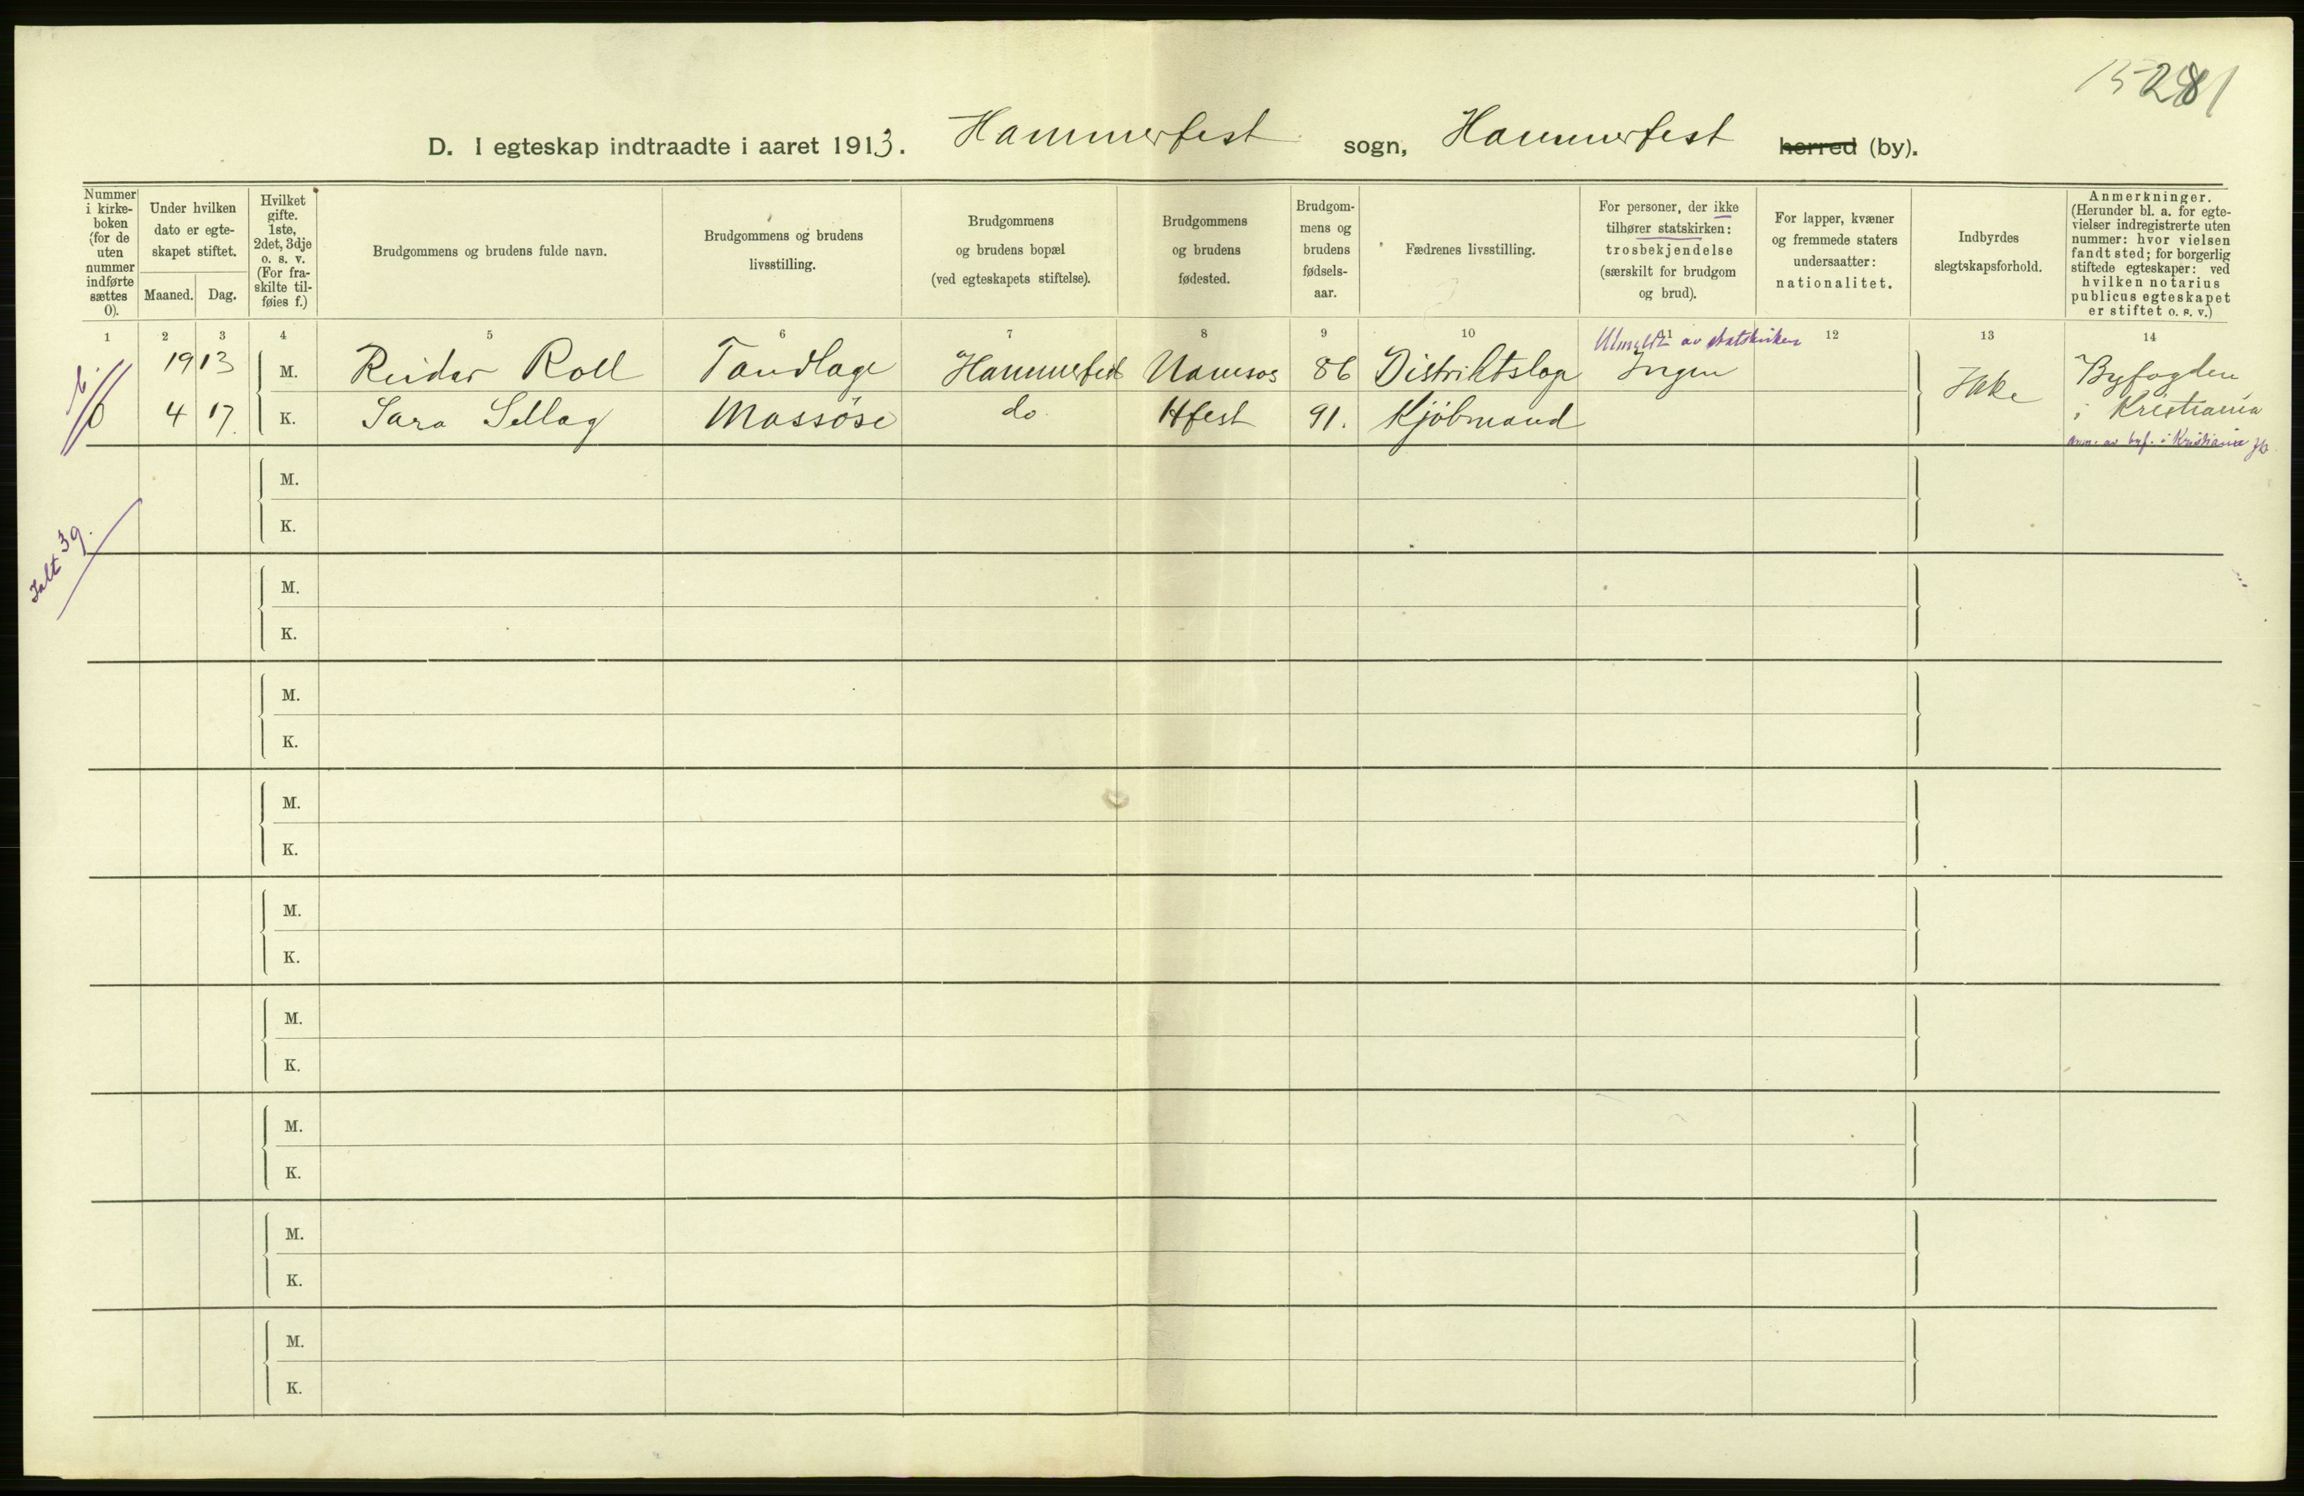 D. I egteskap indtraadte i aaret 1913. Hammerfest sogn, Hammerfest herred (by).
Nummer
i kirke-
boken
(for de
uten
nummer
indførte
sættes
0).
Under hvilken
dato er egte-
skapet stiftet.
Maaned. Dag.
Hvilket
gifte.
1ste,
2det, 3dje
o. s. v.
(For fra-
skilte til-
føies f.)
Brudgommens og brudens fulde navn.
Brudgommens og brudens
livsstilling.
Brudgommens
og brudens bopæl
(ved egteskapets stiftelse).
Brudgommens
og brudens
fødested.
Brudgom-
mens og
brudens
fødsels-
aar.
Fædrenes livsstilling.
For personer, der ikke
tilhører statskirken:
trosbekjendelse
(særskilt for brudgom
og brud).
For lapper, kvæner
og fremmede staters
undersaatter:
nationalitet.
Indbyrdes
slegtskapsforhold.
Anmerkninger.
(Herunder bl. a. for egte-
vielser indregistrerte uten
nummer: hvor vielsen
fandt sted; for borgerlig
stiftede egteskaper: ved
hvilken notarius
publicus egteskapet
er stiftet o. s. v.)
1 2 3 4 5 6 7 8 9 10 11 12 13 14
Utmeldt av statskirken
1913 M. Reidar Roll Tandlæge Hammerfest Namsos 86 Distriktslæge Ingen Ikke Byfogden
0 4 17. K. Sara Sellag Massøse do. Hfest 91. Kjøbmand i Kristiania
anm. av byf. i Kristiania
M.
K.
Ialt 39.
M.
K.
M.
K.
M.
K.
M.
K.
M.
K.
M.
K.
M.
K.
M.
K.